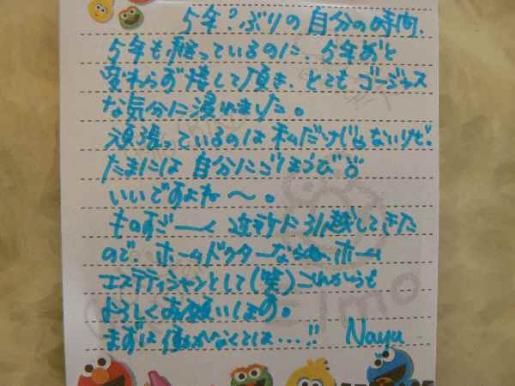 5年ぶりの自分の時間、
5年も経っているのに、5年前と
変わらず接して頂き、とてもゴージャス
な気分に浸れました。
頑張っているのは私だけじゃないけど、
たまには自分にごほうび
いいですよね〜。
ものすごーく近所に引越してきた
ので、ホームドクターならぬ、ホーム
エステティシャンとして(笑)これからも
よろしくお願いします。
まずは働かなくては…!! Nayu
Elmo